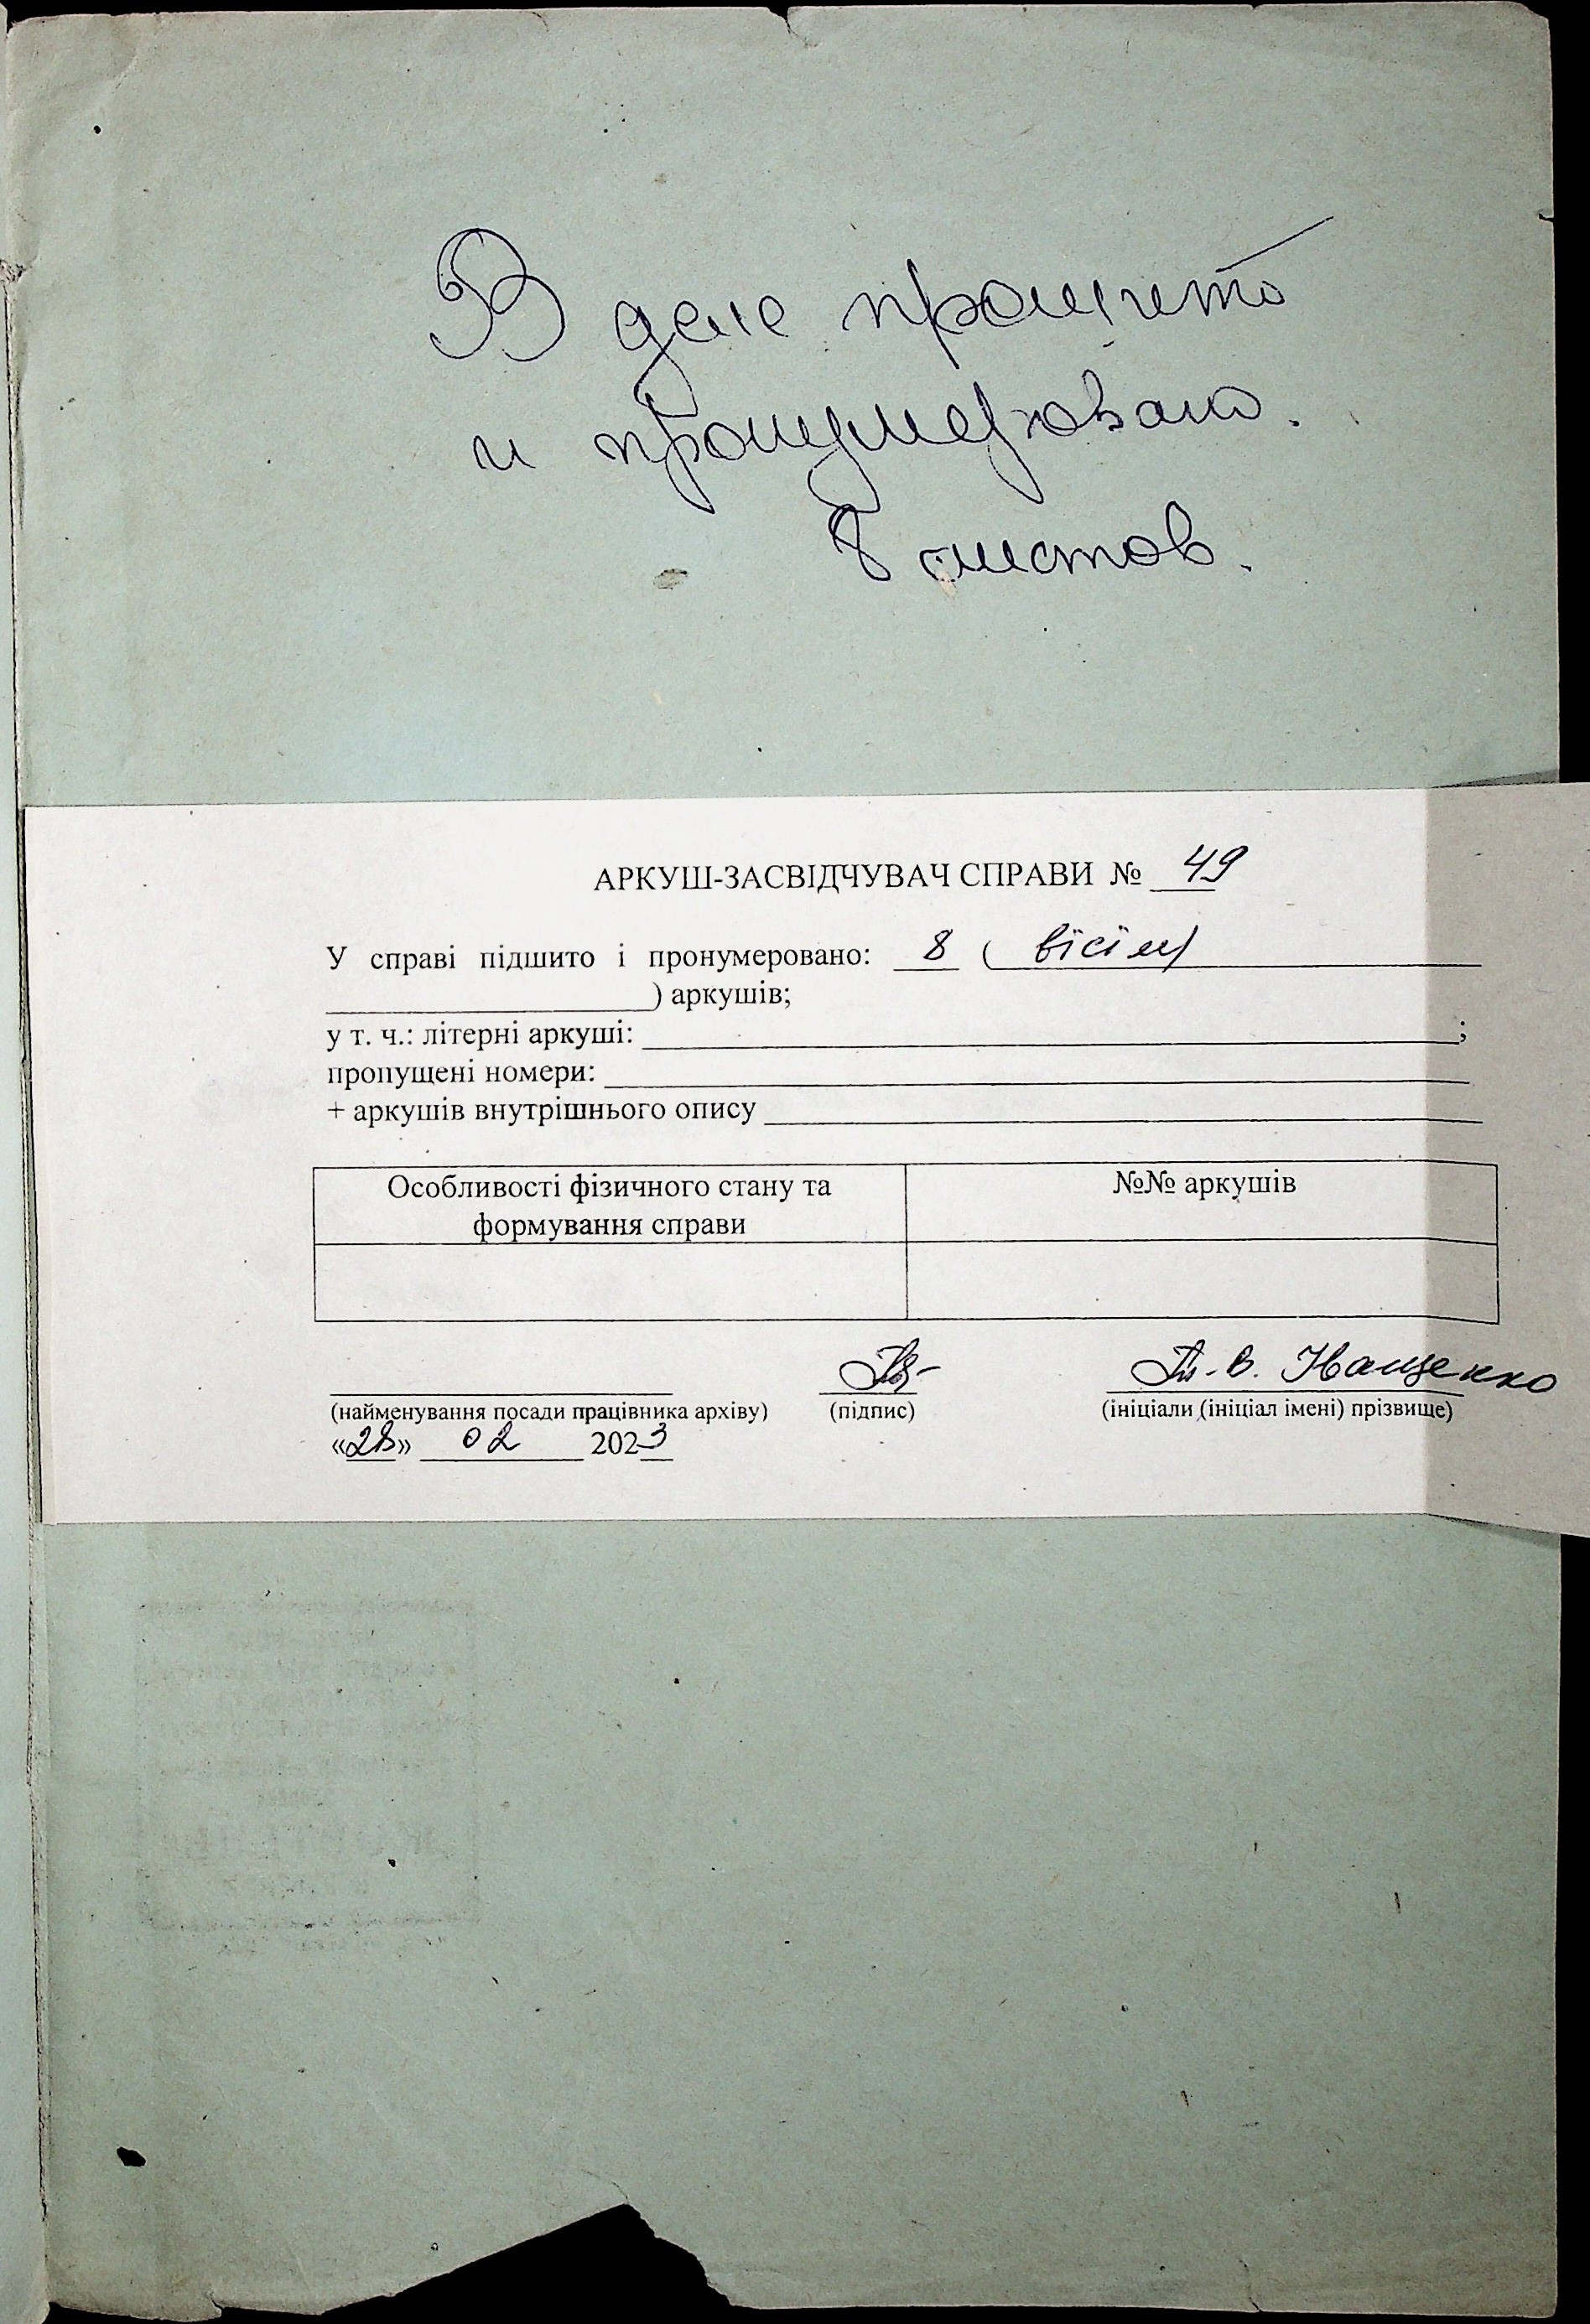 В деле прошито
и пронумеровано.
8 листов.
АРКУШ-ЗАСВІДЧУВАЧ СПРАВИ № 49
У справі підшито і пронумеровано: 8 ( вісім)
) аркушів;
у т. ч.: літерні аркуші: ;
пропущені номери:
+ аркушів внутрішнього опису
Особливості фізичного стану та
формування справи
№№ аркушів
В. Іващенко
(найменування посади працівника архіву) (підпис) (ініціали (ініціал імені) прізвище)
«28» 02 2023